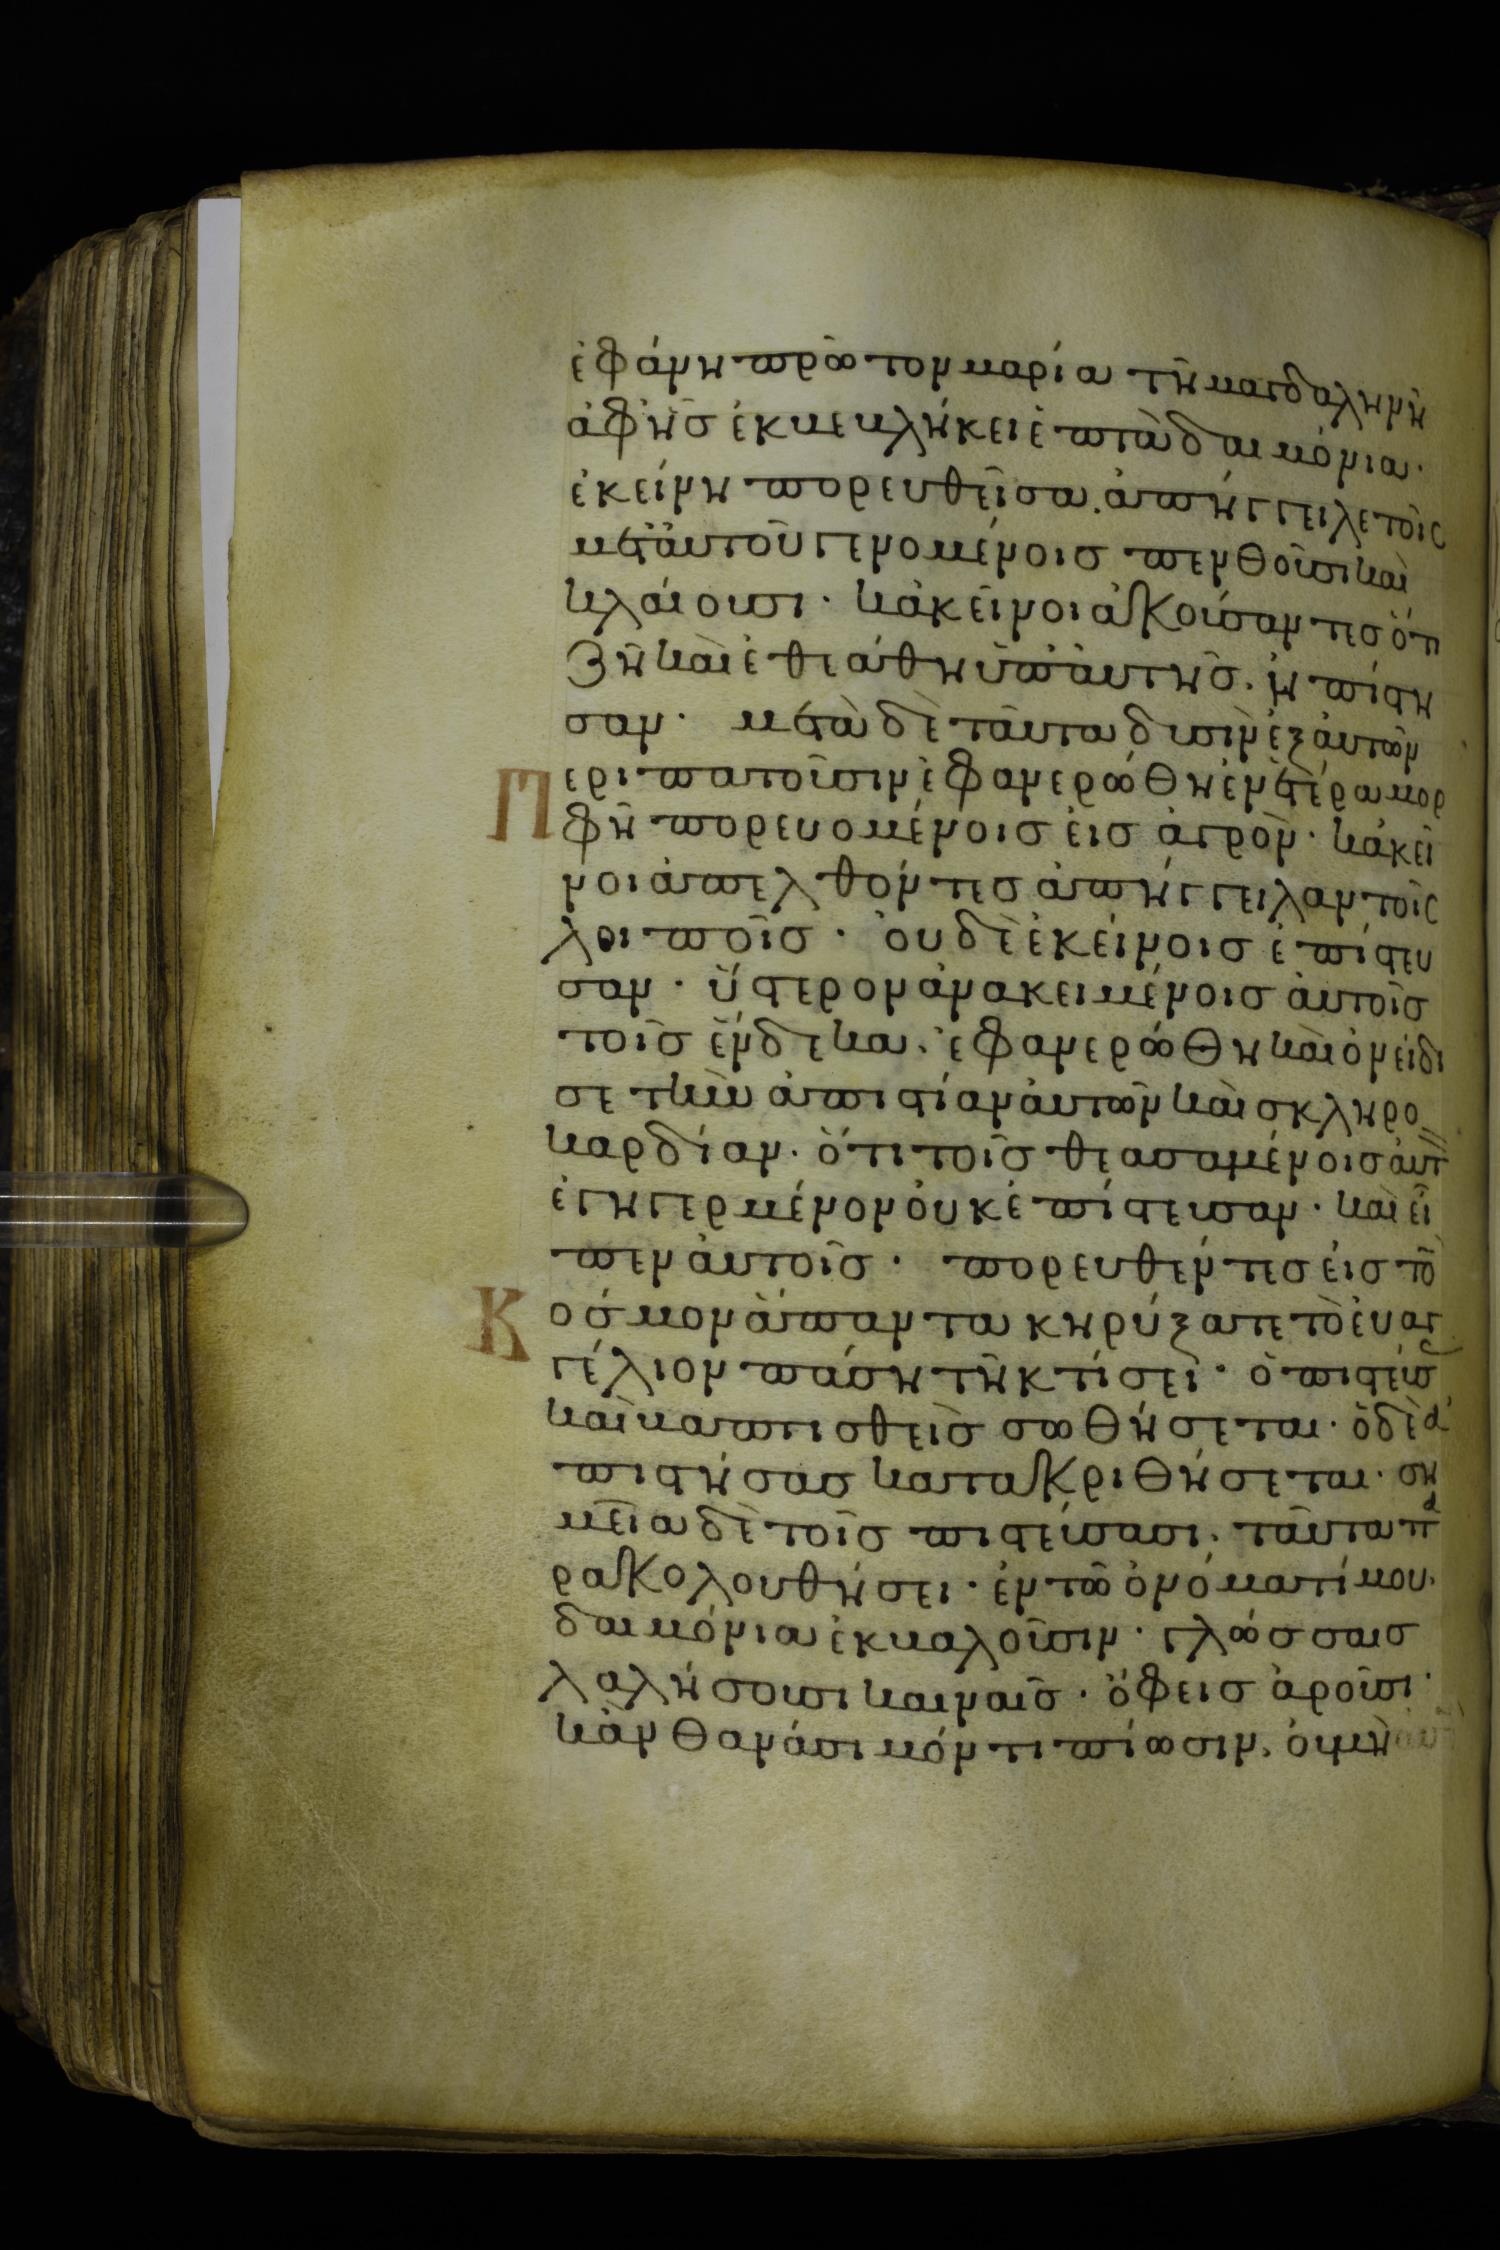 ἐφάνη πρῶτον μαρία τῆ μαγδαληνῆ
ἀφ ἧς ἐκβεβλήκει ἑπτὰ δαιμόνια·
ἐκείνη πορευθεῖσα. ἀπήγγειλε τοῖς
μετ ἀυτοῦ γενομένοις πενθοῦσι καὶ
κλάιουσι· κἀκεῖνοι ἀκούσαντες ὅτι
ζῆ καὶ ἐθεάθη ὑπ ἀυτῆς. ἠπίστη
σαν· μετὰ δὲ ταῦτα δυσὶν ἐξ ἀυτῶν
Περιπατοῦσιν ἐφανερώθη ἐν ἑτέρα μορ
φῆ πορευομένοις ἐις ἀγρὸν· κἀκεῖ
νοι ἀπελθόντες ἀπήγγειλαν τοῖς
λοιποῖς· ὀυδὲ ἐκείνοις ἐπίστευ
σαν· ὕστερον ἀνακειμένοις ἀυτοῖς
τοῖς ἕνδεκα. ἐφανερώθη καὶ ὀνείδι
σε τὴν ἀπιστίαν ἀυτῶν καὶ σκληρο
καρδίαν. ὅτι τοῖς θεασαμένοις ἀυτ
ἐγηγερμένον ὀυκ ἐπίστευσαν· καὶ εἶ
πεν ἀυτοῖς· πορευθέντες ἐις τὸ
Κόσμον ἅπαντα κηρύξατε τὸ ἐυαγ
γέλιον πάση τῆ κτίσει· ὁ πιστεύσ
καὶ βαπτισθεὶς σωθήσεται· ὁ δὲ ἀ
πιστήσας κατακριθήσεται· ση
μεῖα δὲ τοῖς πιστεύσασι. ταῦτα πα
ρακολουθήσει· ἐν τῶ ὀνόματί μου.
δαιμόνια ἐκβαλοῦσιν· γλώσσαις
λαλήσουσι καιναῖς· ὄφεις ἀροῦσι·
κἂν θανάσιμόν τι πίωσιν. ὀυ μὴ